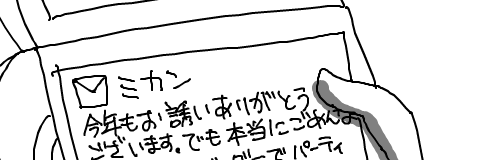 ミカン
今年もお誘いありがとう
ございます。でも本当にごめんなさ
グーでパーティ